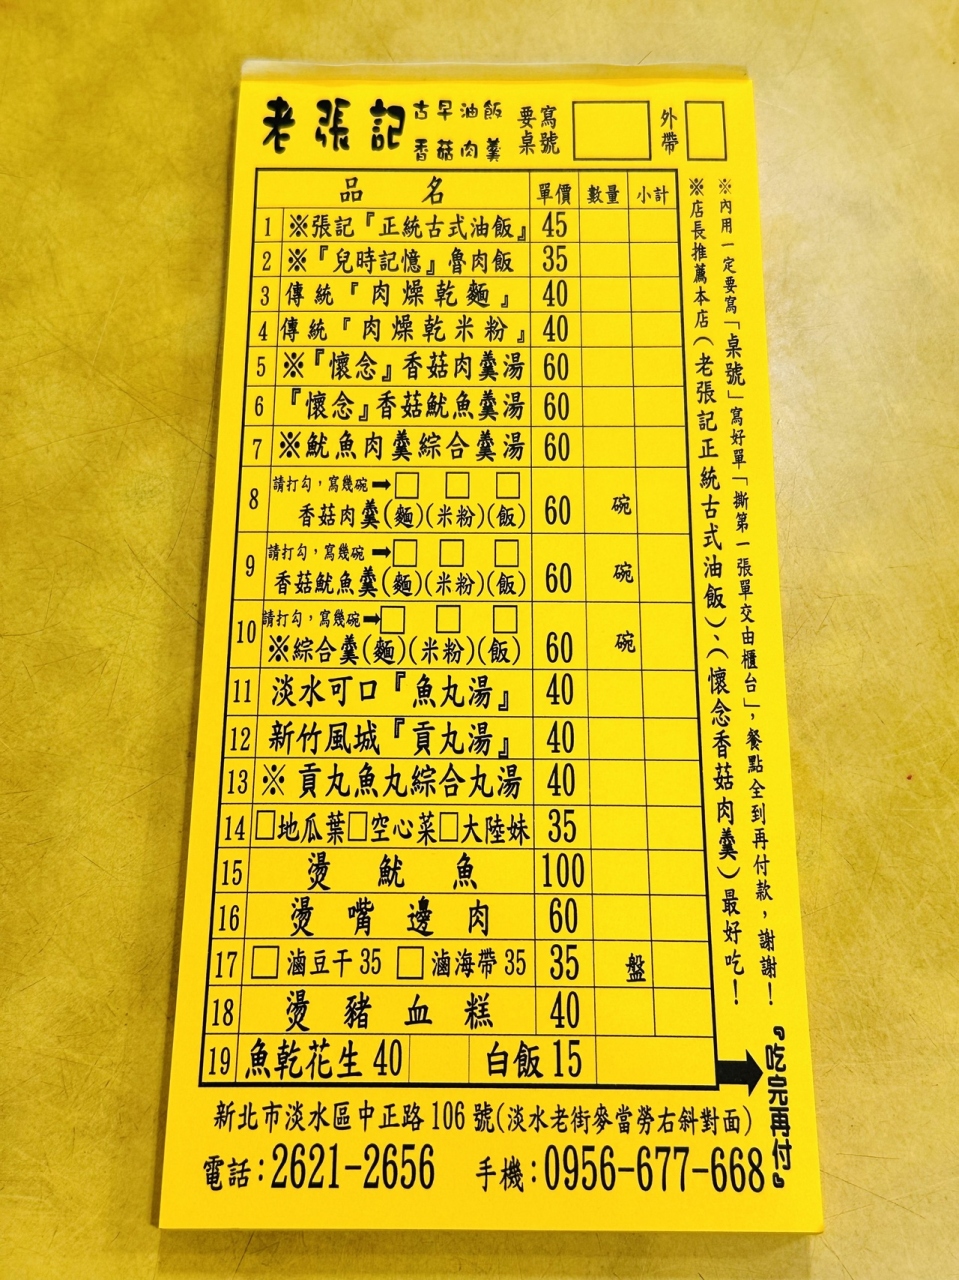 老張記 古早油飯 要寫 外
香菇肉羹 桌號 帶
品名 單價 數量 小計
1 ※張記『正統古式油飯』 45
2 ※『兒時記憶』魯肉飯 35
3 傳統『肉燥乾麵』 40
4 傳統『肉燥乾米粉』 40
5 ※『懷念』香菇肉羹湯 60
6 『懷念』香菇魷魚羹湯 60
7 ※魷魚肉羹綜合羹湯 60
8 請打勾，寫幾碗➡□ □ □
香菇肉羹(麵)(米粉)(飯) 60 碗
9 請打勾，寫幾碗➡□ □ □
香菇魷魚羹(麵)(米粉)(飯) 60 碗
10 請打勾，寫幾碗➡□ □ □
※綜合羹(麵)(米粉)(飯) 60 碗
11 淡水可口『魚丸湯』 40
12 新竹風城『貢丸湯』 40
13 ※貢丸魚丸綜合丸湯 40
14 □地瓜葉□空心菜□大陸妹 35
15 燙魷魚 100
16 燙嘴邊肉 60
17 □滷豆干35 □滷海帶35 35 盤
18 燙豬血糕 40
19 魚乾花生40 白飯15
※內用一定要寫「桌號」寫好單「撕第一張單交由櫃台」，餐點全到再付款，謝謝！
※店長推薦本店(老張記正統古式油飯)、(懷念香菇肉羹)最好吃！
『吃完再付』
新北市淡水區中正路106號(淡水老街麥當勞右斜對面)
電話:2621-2656 手機:0956-677-668